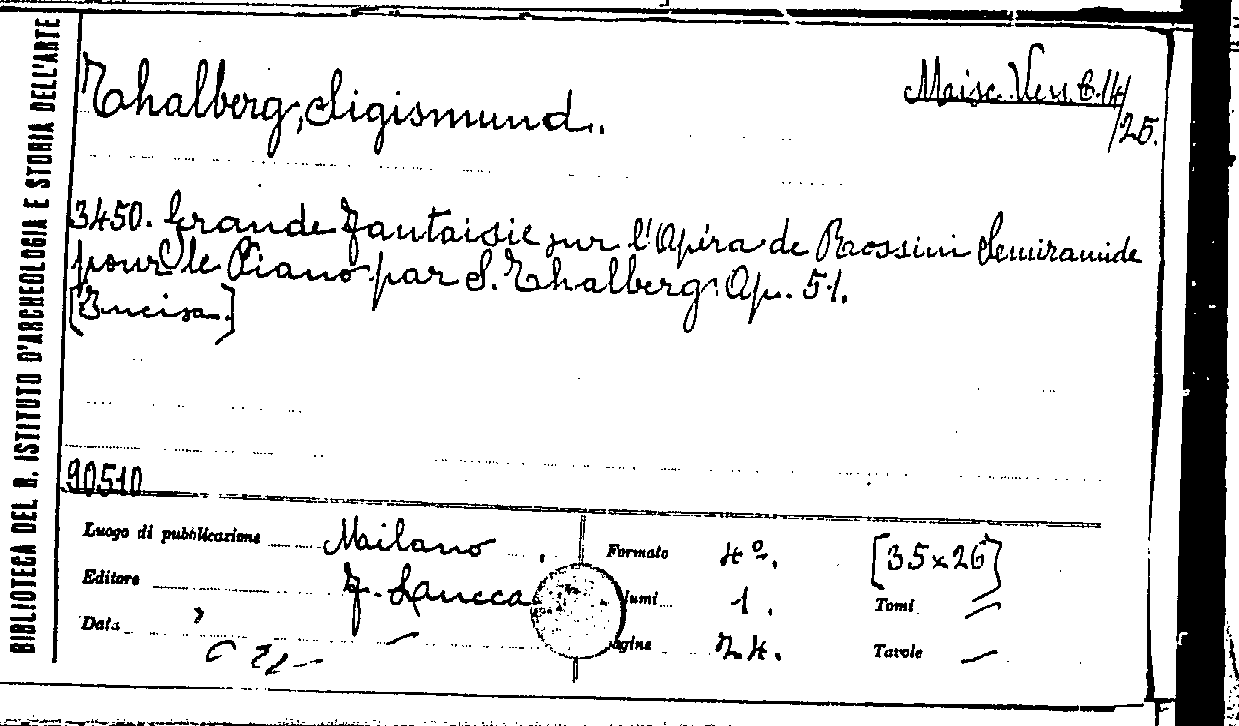 BIBLIOTECA DEL R. ISTITUTO D'ARCHEOLOGIA E STORIA DELL'ARTE
Thalberg, Sigismund.
Maisc. Vess. C. 14/25.
3450. Grande Fantaisie sur l'Opéra de Rossini Semiramide
pour le Piano par S. Thalberg. Op. 51.
[Incisa.]
90510
Luogo di pubblicazione Milano
Formato 4º. [35x26]
Editore F. Lucca
lumi 1. Tomi –
Data –
gine 24. Tavole –